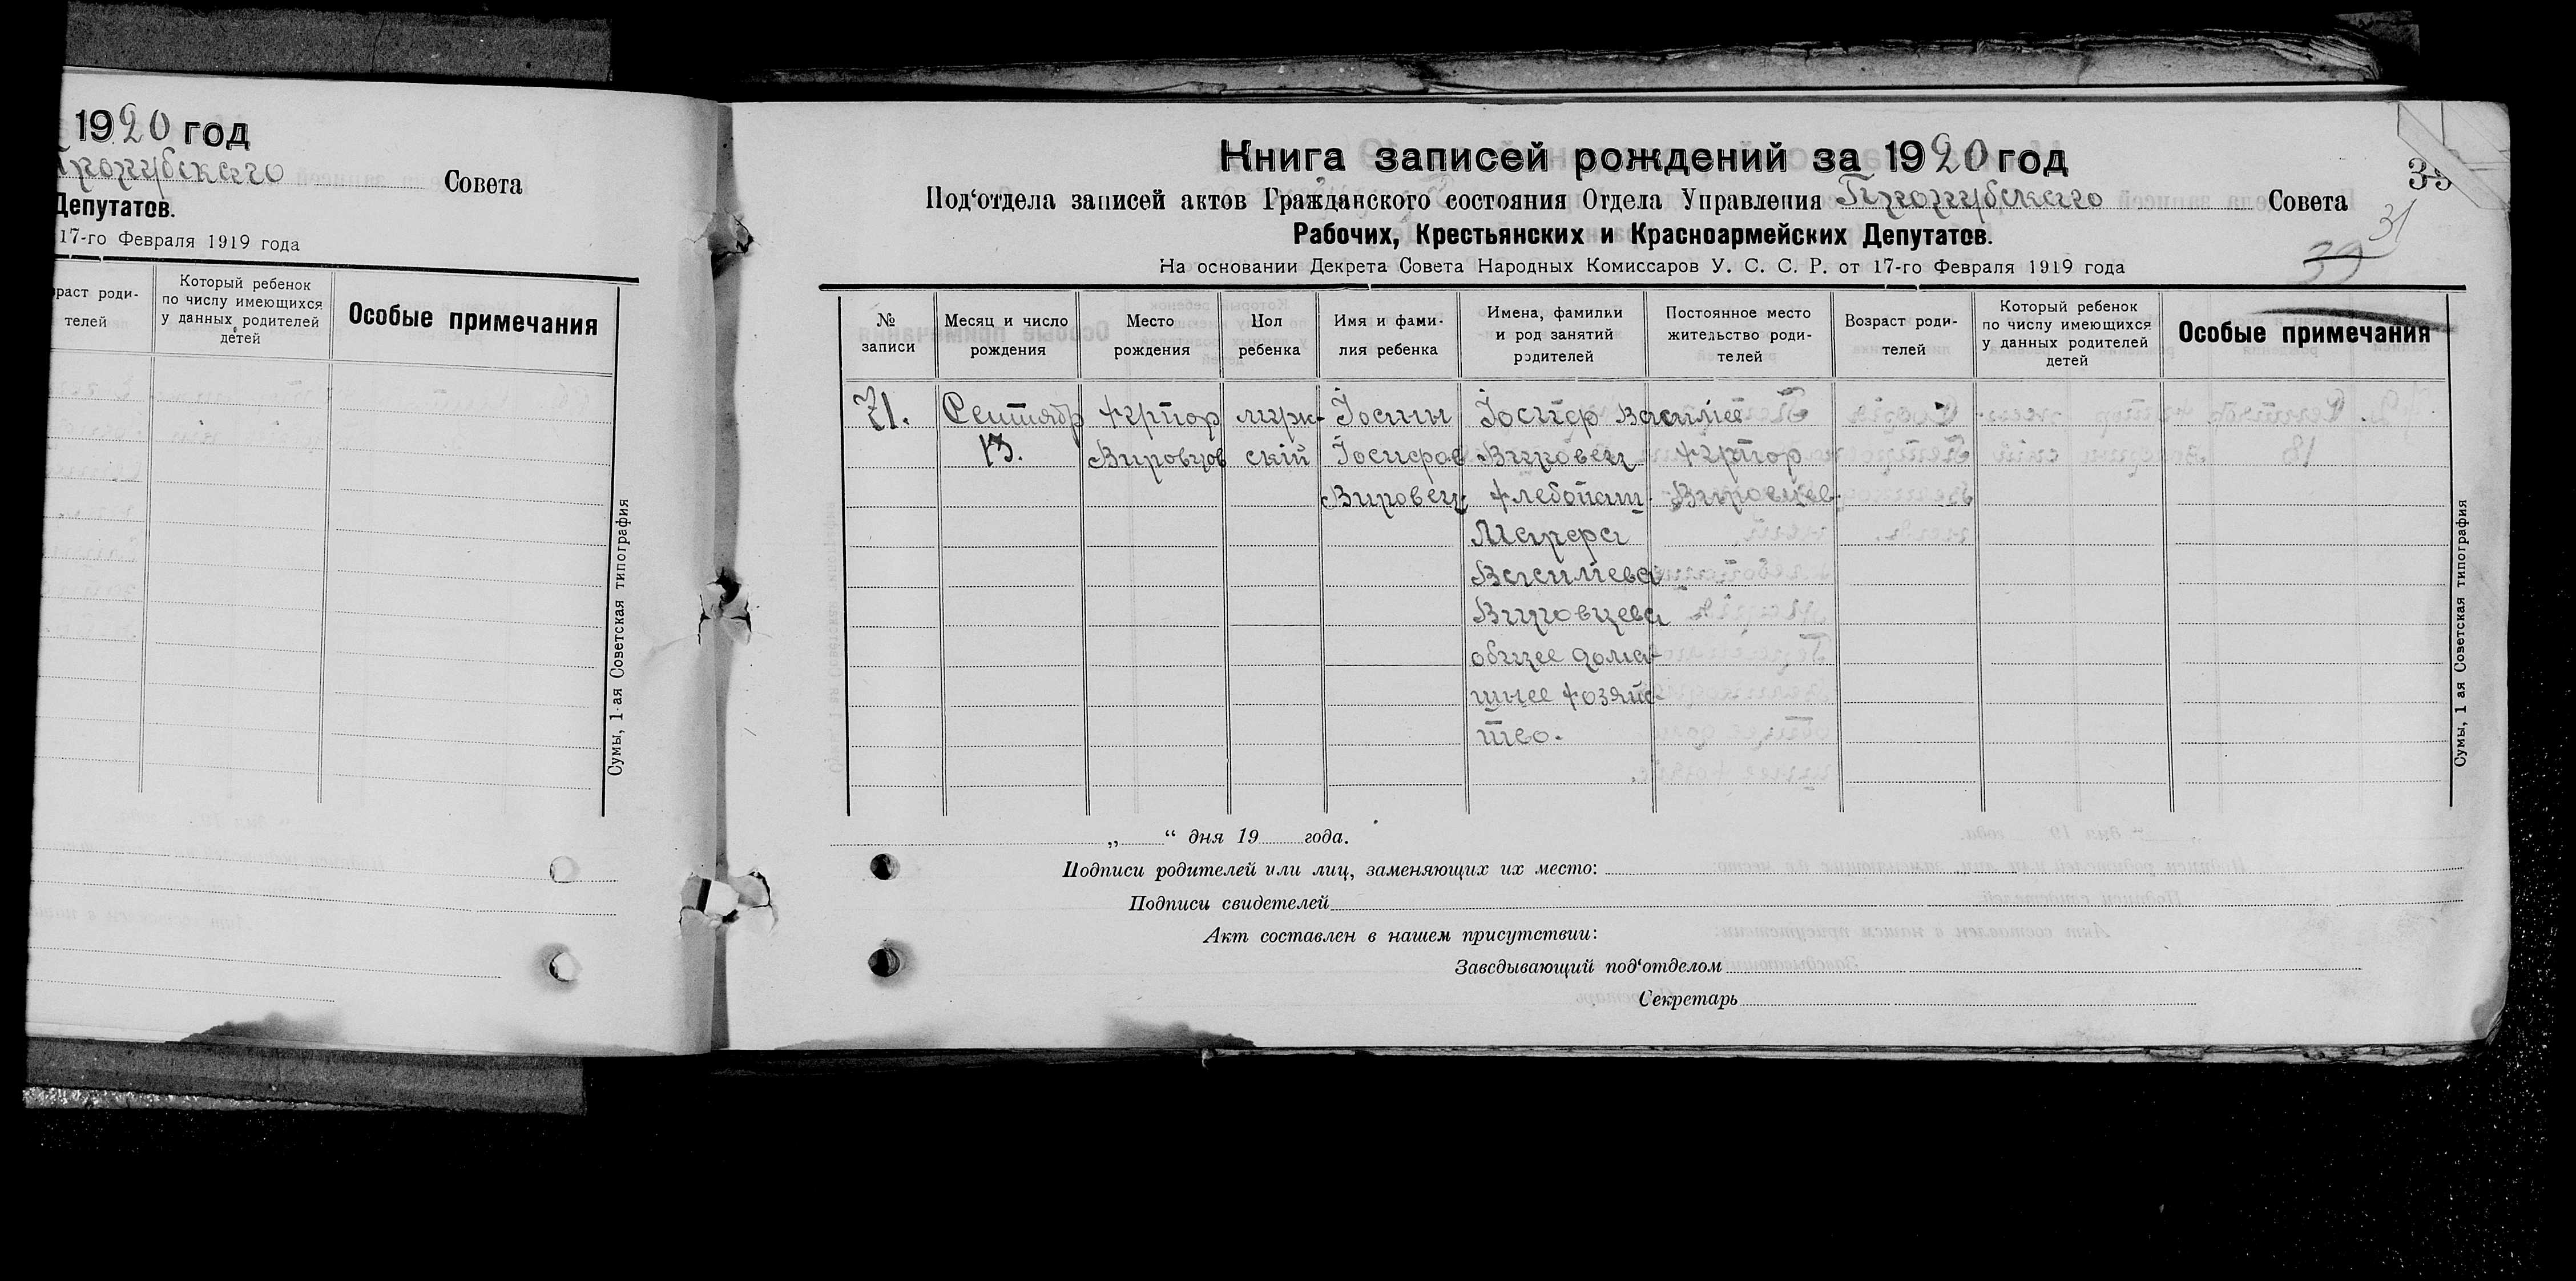 1920 год
Прорубского Совета
Депутатов.
17-го Февраля 1919 года
раст роди-
телей
Который ребенок
по числу имеющихся
у данных родителей
детей
Особые примечания
Сумы, 1-ая Советская типография
Книга записей рождений за 1920 год
35
Под‘отдела записей актов Гражданского состояния Отдела Управления Прорубского Совета
31
39
Рабочих, Крестьянских и Красноармейских Депутатов.
На основании Декрета Совета Народных Комиссаров У. С. С. Р. от 17-го Февраля 1919 года
№
записи
Месяц и число
рождения
Место
рождения
Пол
ребенка
Имя и фами-
лия ребенка
Имена, фамилии
и род занятий
родителей
Постоянное место
жительство роди-
телей
Возраст роди-
телей
Который ребенок
по числу имеющихся
у данных родителей
детей
Особые примечания
71.
Сентябр
13.
Хутор
Вировцов
муж-
скій
Іосиъ
Іосифов
Вировец
Іосиф Василіев
Вировец
хлебопаш.
Марфа
Василіева
Вировцева
общее дома-
шнее хозяйс-
тво.
Хутор
Вировцев
„ “ дня 19 года.
Подписи родителей или лиц, заменяющих их место:
Подписи свидетелей
Акт составлен в нашем присутствии:
Заведывающий под‘отделом
Секретарь
Сумы, 1 ая Советская типография